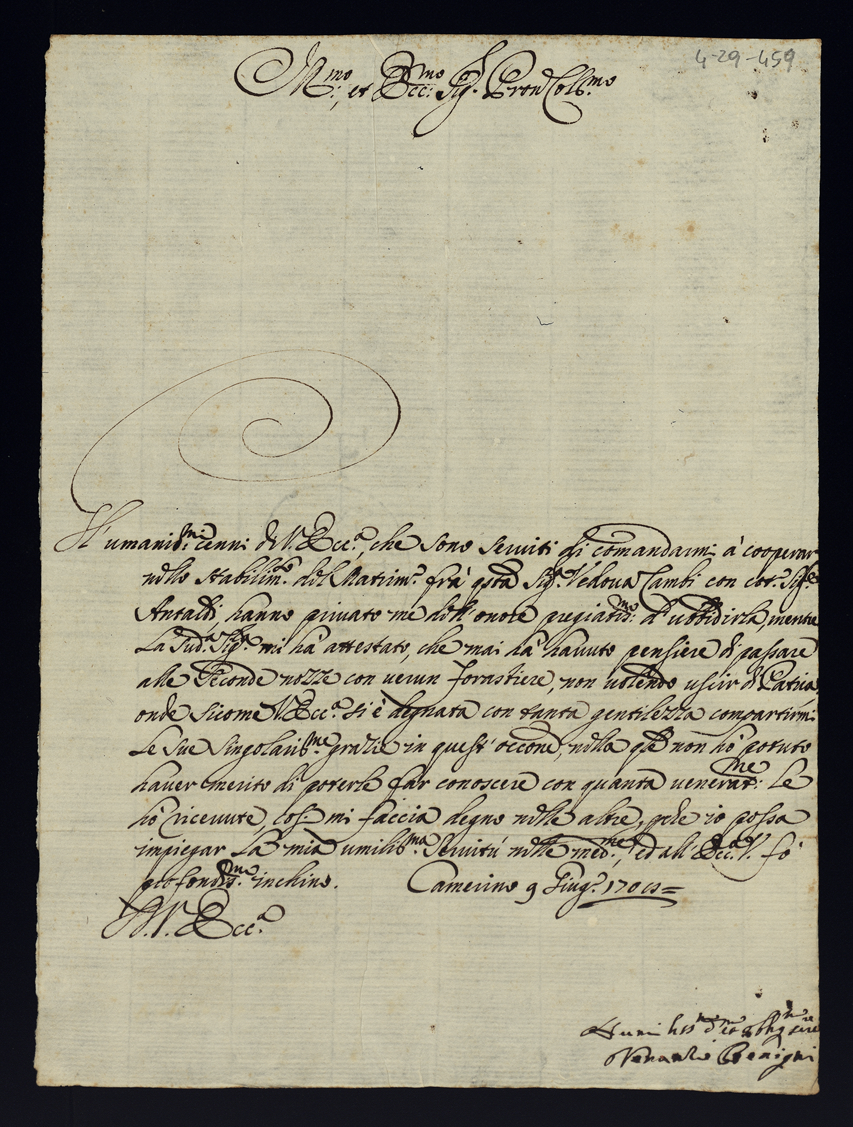 4-29-459
Ill.mo et Ecc.mo Sig.r Pron Col.mo
Humaniss.mi cenni di V. Ecc.a, che sono seruiti di comandarmi à cooperar
nello stabilim.to del Matrim.o frà q.sta Sig.ra Vedoua Cambi con cot.o Sig.r
Antaldi, hanno priuato me dell'onore pregiatiss.mo d'ubbidirla, mentre
La Sud.a Sig.ra mi hà attestato, che mai hà hauuto pensiere di passare
alle Seconde nozze con uerun forastiere, non uolendo uscir di Patria,
onde sicome V. Ecc.a si è degnata con tanta gentilezza compartirmi
Le Sue Singolariss.me grazie in quest'occone, nella q.le non hò potuto
hauer merito di poterle far conoscere con quanta uenerat.ne Le
hò riceuute, così mi faccia degno nelle altre, p.che io possa
impiegar La mia umiliss.ma Seruitù nelle med.me, ed all'Ecc.a V. fò
profondiss.mo inchino. Camerino 9 Giug.o
D. V. Ecc.a
Humiliss.mo D.mo et Oblig.mo Ser.re
Venantio Benigni